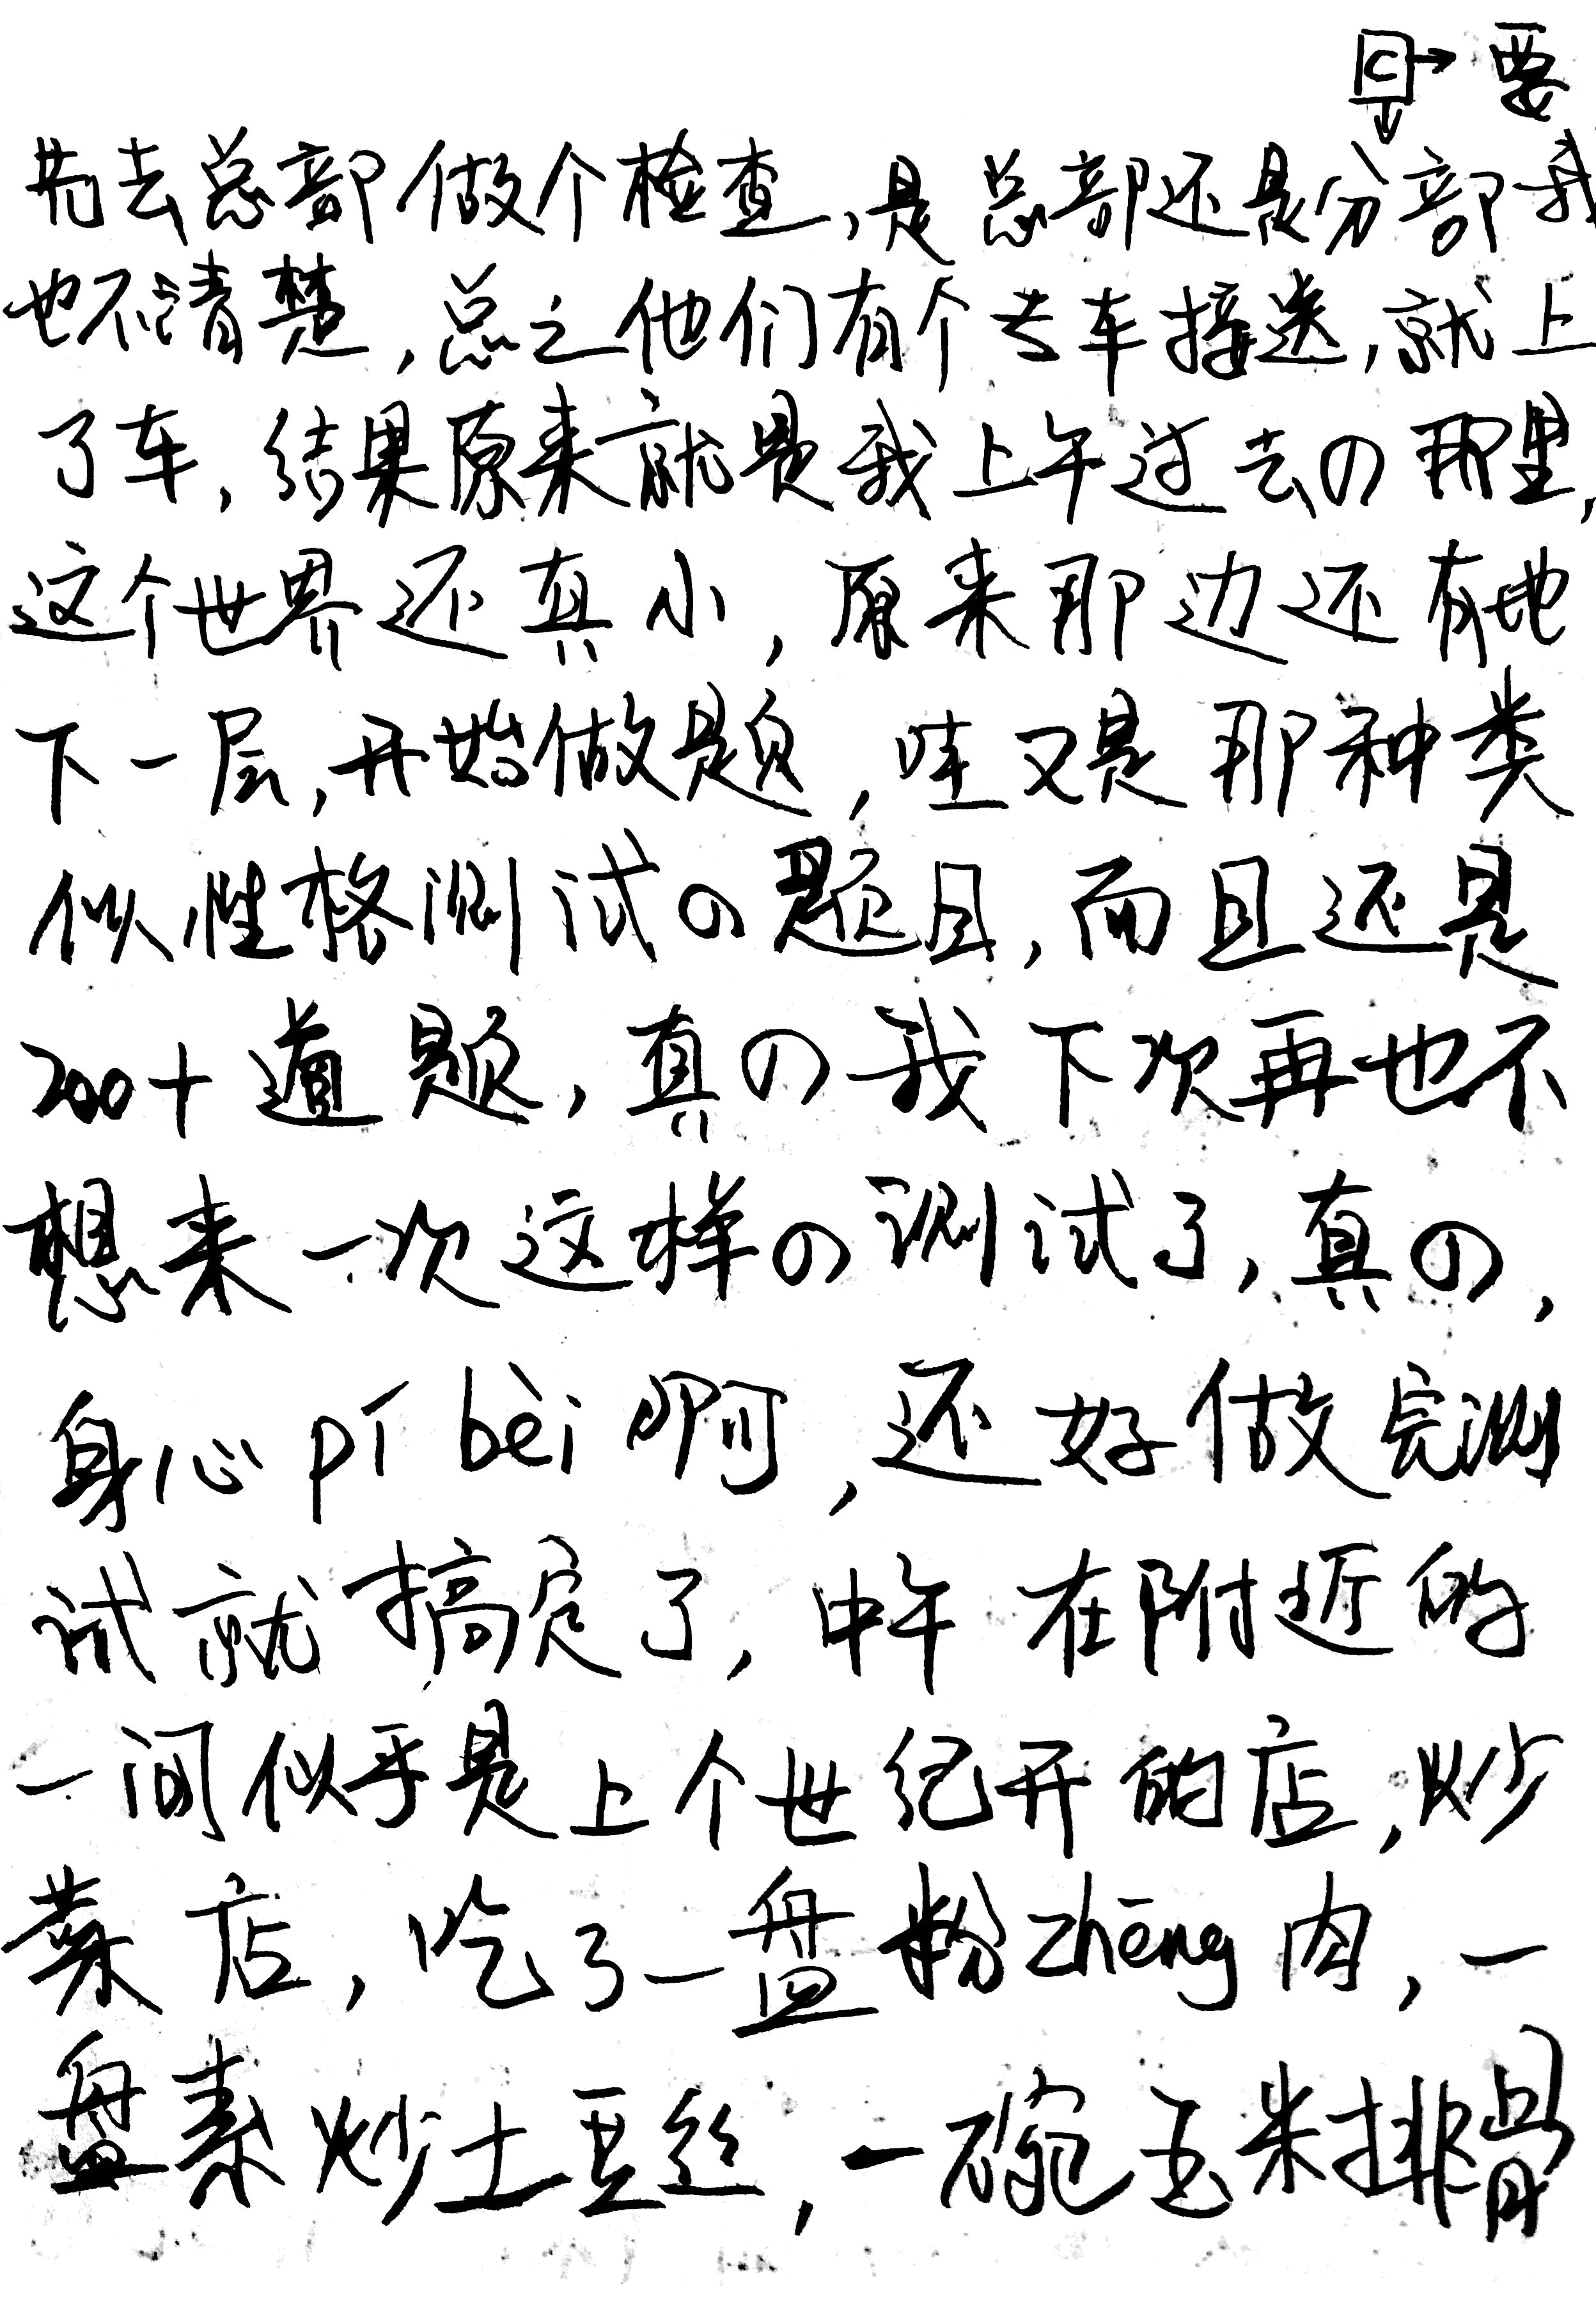 C → 要
先去总部做个检查,是总部还是分部我
也不清楚,总之他们有个专车接送,就上
了车,结果原来就是我上午过去の那里,
这个世界还真小,原来那边还有地
下一层,开始做题,哇又是那种类
似性格测试の题目,而且还是
200+道题,真の我下次再也不
想来一次这样の测试了,真の,
身心pí bèi啊,还好做完测
试就搞定了,中午在附近的
一间似乎是上个世纪开的店,炒
菜店,吃了一盘粉zhēng肉,一
盘素炒土豆丝,一碗玉米排骨